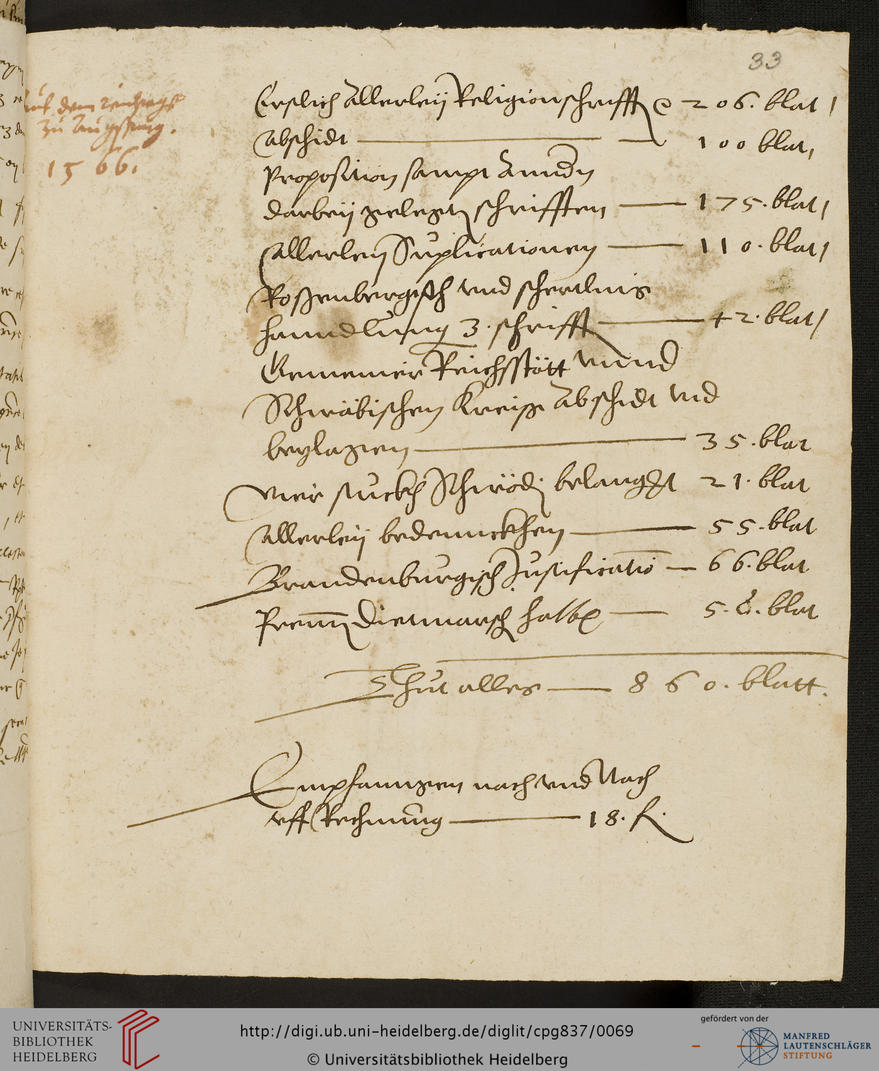 33
Auß dem Reichstag
zu Augspurg.
1566.
Erstlich Allerleij Religionschrifften 206. blat
Abschidt 100 blat,
Proposition sampt Anndern
darbeij gelegten schrifften 175. blat
Allerleij Suplicationen 110. blat
Roßenbergisch vnd schertlins
hanndlung 3. schrifft 42. blat
Gemeiner Reichsstött vnnd
Schwäbischen Kreiß Abschidt vnd
beylagen 35. blat
vier stuckh Schwödn belangendt 21. blat
Allerleij bedennckhen 55. blat
Brandenburgisch Justificatio 66. blat
Dietmarsch halben 58. blat
Thut alles 860. blatt.
Empfanngen nach vnd Nach
vff Rechnung 18. fl.
UNIVERSITÄTS-
BIBLIOTHEK
HEIDELBERG
http://digi.ub.uni-heidelberg.de/diglit/cpg837/0069
© Universitätsbibliothek Heidelberg
gefördert von der
MANFRED
LAUTENSCHLÄGER
STIFTUNG